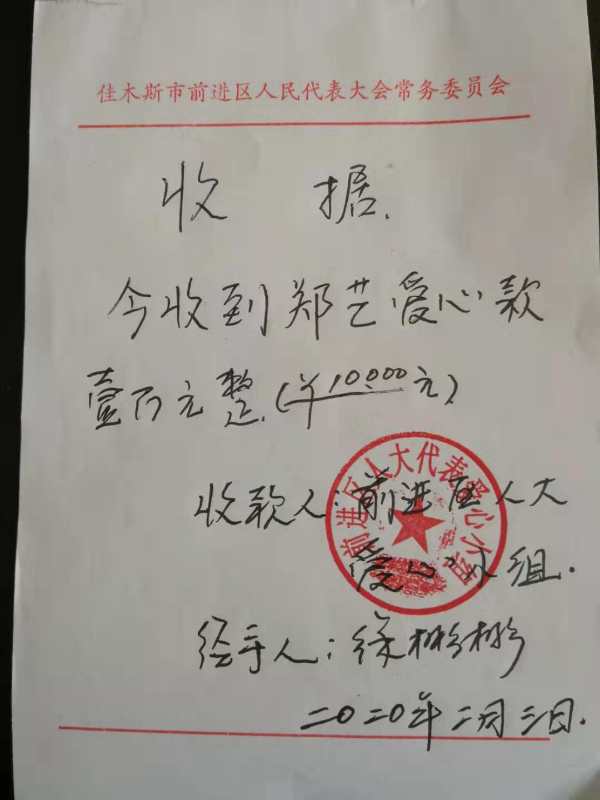 佳木斯市前进区人民代表大会常务委员会
收 据.
今收到郑艺爱心款
壹百元整(¥100.00元)
收款人:前进区人大
爱心小组.
前进区人大代表爱心小组
经手人:徐彬彬
二〇二〇年二月三日.